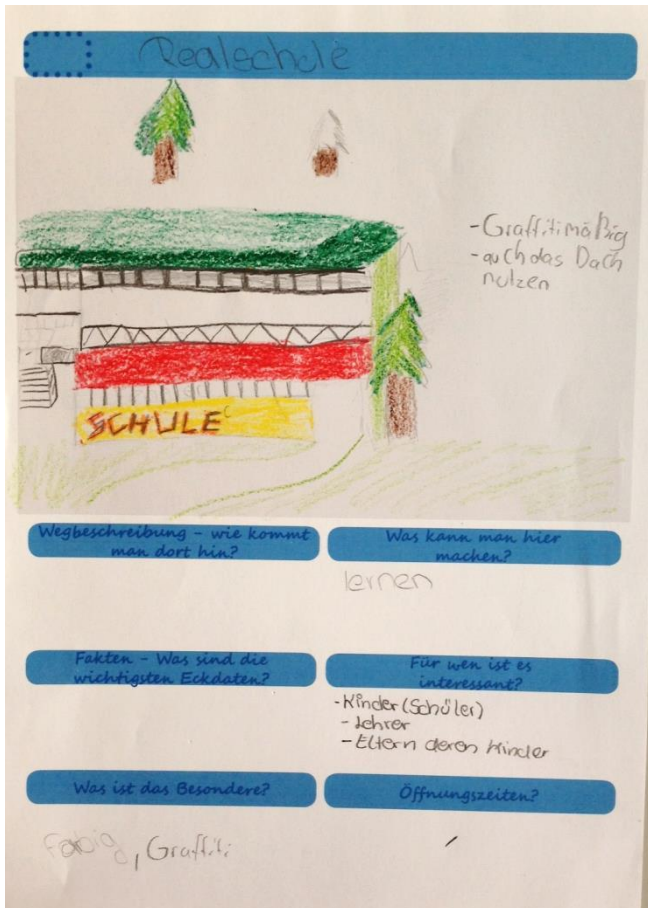 Realschule
-Graffitimäßig
-auch das Dach
nutzen
SCHULE
Wegbeschreibung - wie kommt
man dort hin?
Was kann man hier
machen?
lernen
Fakten - Was sind die
wichtigsten Eckdaten?
Für wen ist es
interessant?
-Kinder (Schüler)
- Lehrer
- Eltern deren Kinder
Was ist das Besondere?
Öffnungszeiten?
Farbig, Graffiti